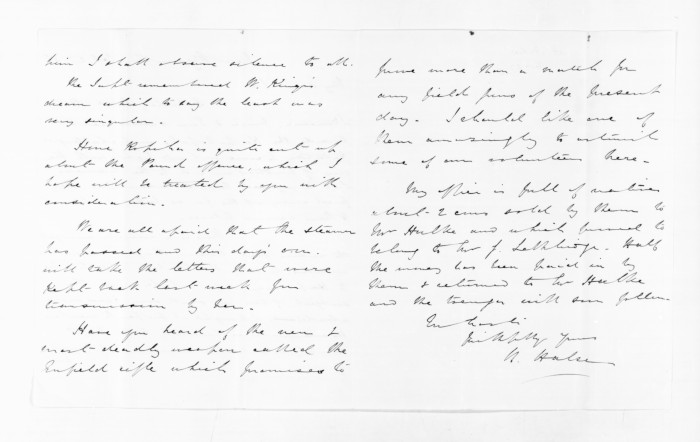 him I shall observe silence to all.
The Supt remembered W. King's
dream which to say the least was
very singular.
Hone Ropiha is quite cut up
about the Pound affair, which I
hope will be treated by you with
consideration.
We are all afraid that the steamer
has passed and this day's over.
will take the letters that were
kept back last week for
transmission by her.
Have you heard of the new &
most deadly weapon called the
Enfield rifle which promises to
prove more than a match for
any field guns of the present
day. I should like one of
them amazingly to astonish
some of our volunteers here.
My office is full of natives
about 2 cows sold by them to
Mr Hulke and which proved to
belong to Mr J. Lethbridge. Half
the money has been paid in by
them & returned to Mr Hulke
and the transfer will soon follow.
In haste
faithfully yours
H. Halse